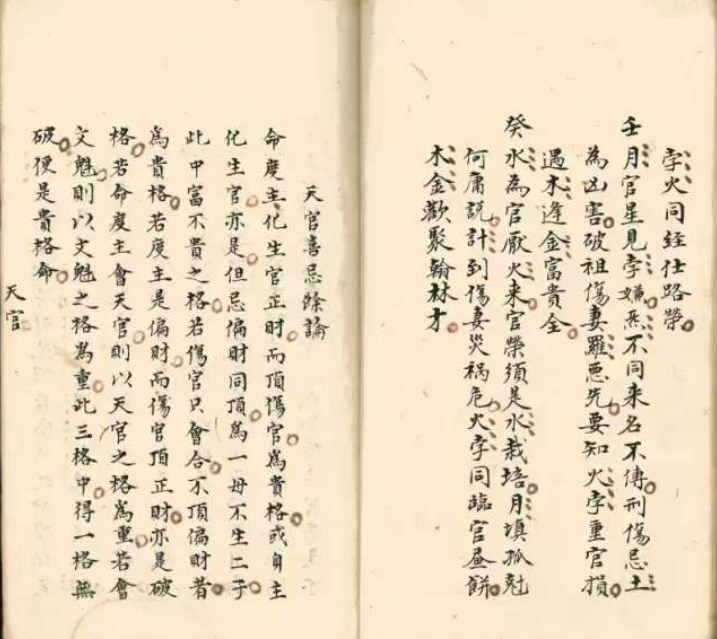 孛火同經仕路榮
壬月官星見孛嫌炁不同来名不傳刑傷忌土
為凶害破祖傷妻羅悪先要知火孛重官損
過木逢金富貴全
癸水為官厭火来官榮須是水栽培月填孤尅
何庸説計到傷妻災禍危火孛同臨官昼餅
木金歡聚翰林才
天官喜忌餘論
命度主化生官正財而頂傷官為貴格或身主
化生官亦是但忌偏財同頂為一母不生二子
此中富不貴之格若傷官只會合不頂偏財者
為貴格若度主是偏財而傷官頂正財亦是破
格若命度主會天官則以天官之格為重若會
文魁則以文魁之格為重此三格中得一格無
破便是貴格命
天官